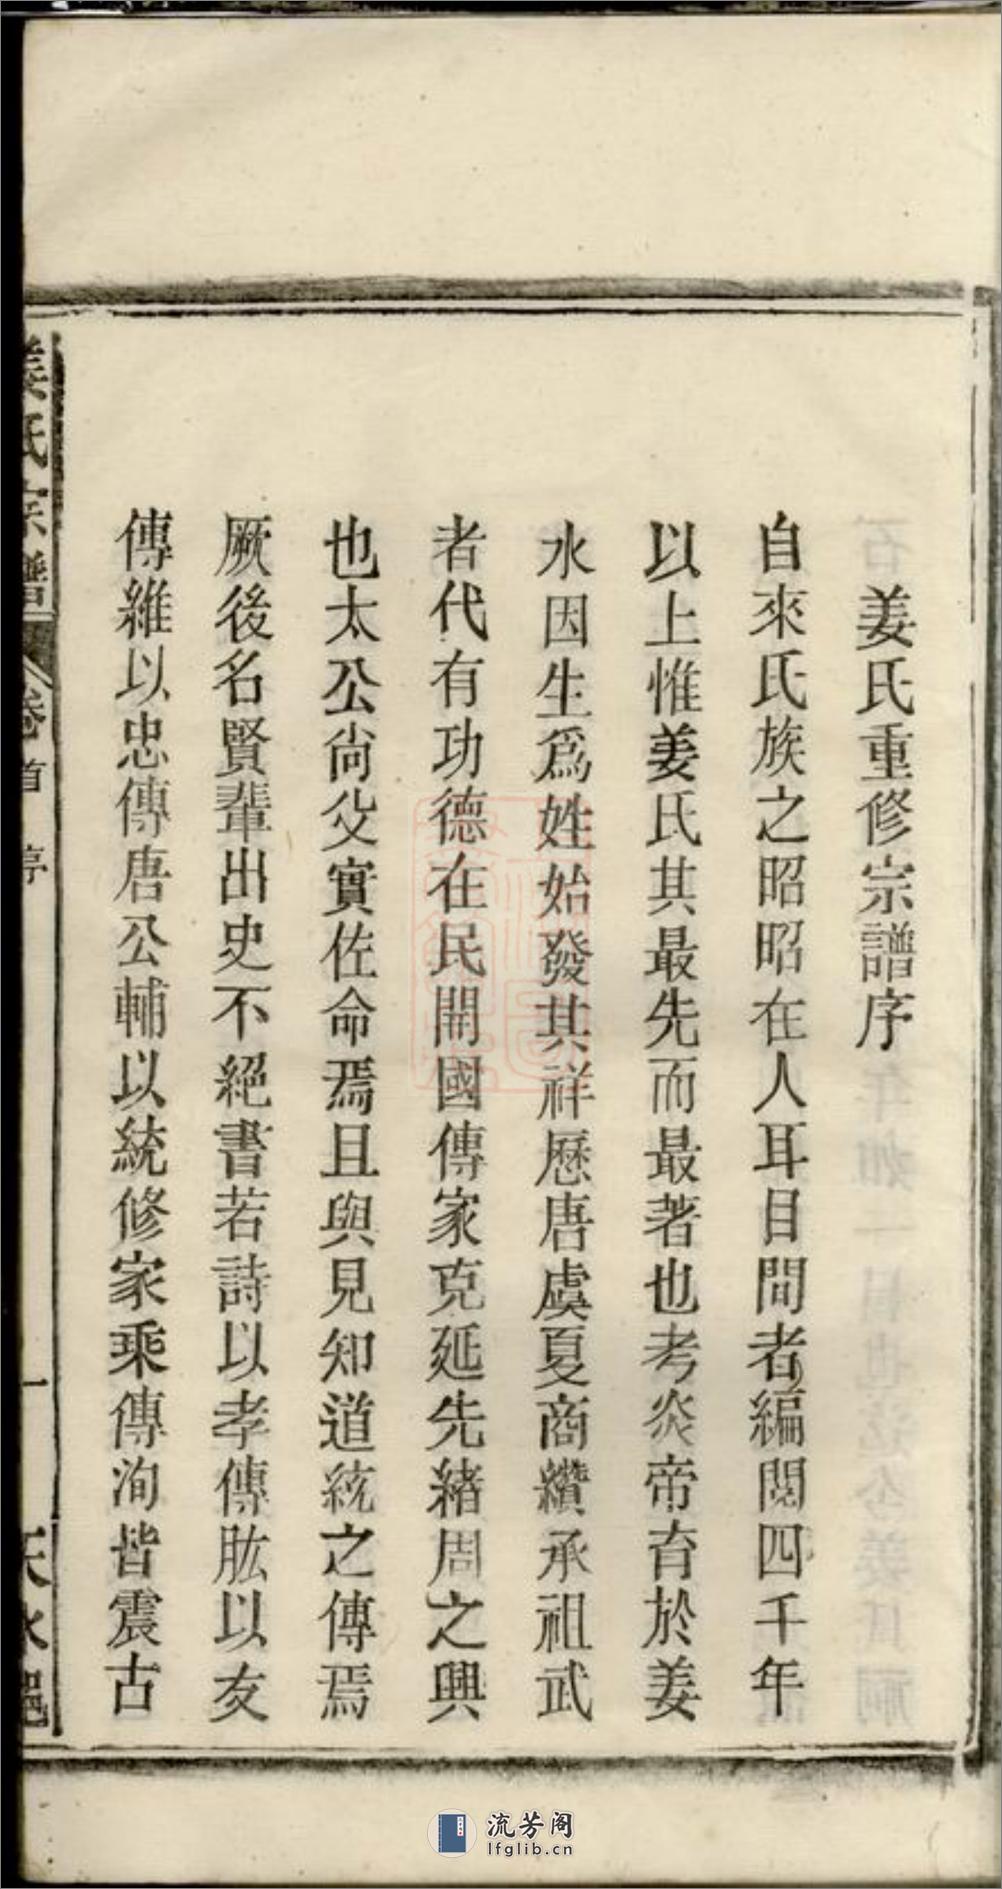 姜氏重修宗譜序
自來氏族之昭昭在人耳目間者編閱四千年
以上惟姜氏其最先而最著也考炎帝育於姜
水因生爲姓始發其祥歷唐虞夏商纘承祖武
者代有功德在民開國傳家克延先緒周之興
也太公尙父實佐命焉且與見知道統之傳焉
厥後名賢輩出史不絕書若詩以孝傳肱以友
傳維以忠傳唐公輔以統修家乘傳洵皆震古
姜氏宗譜 卷首 序 一 天水
流芳阁
lfglib.cn